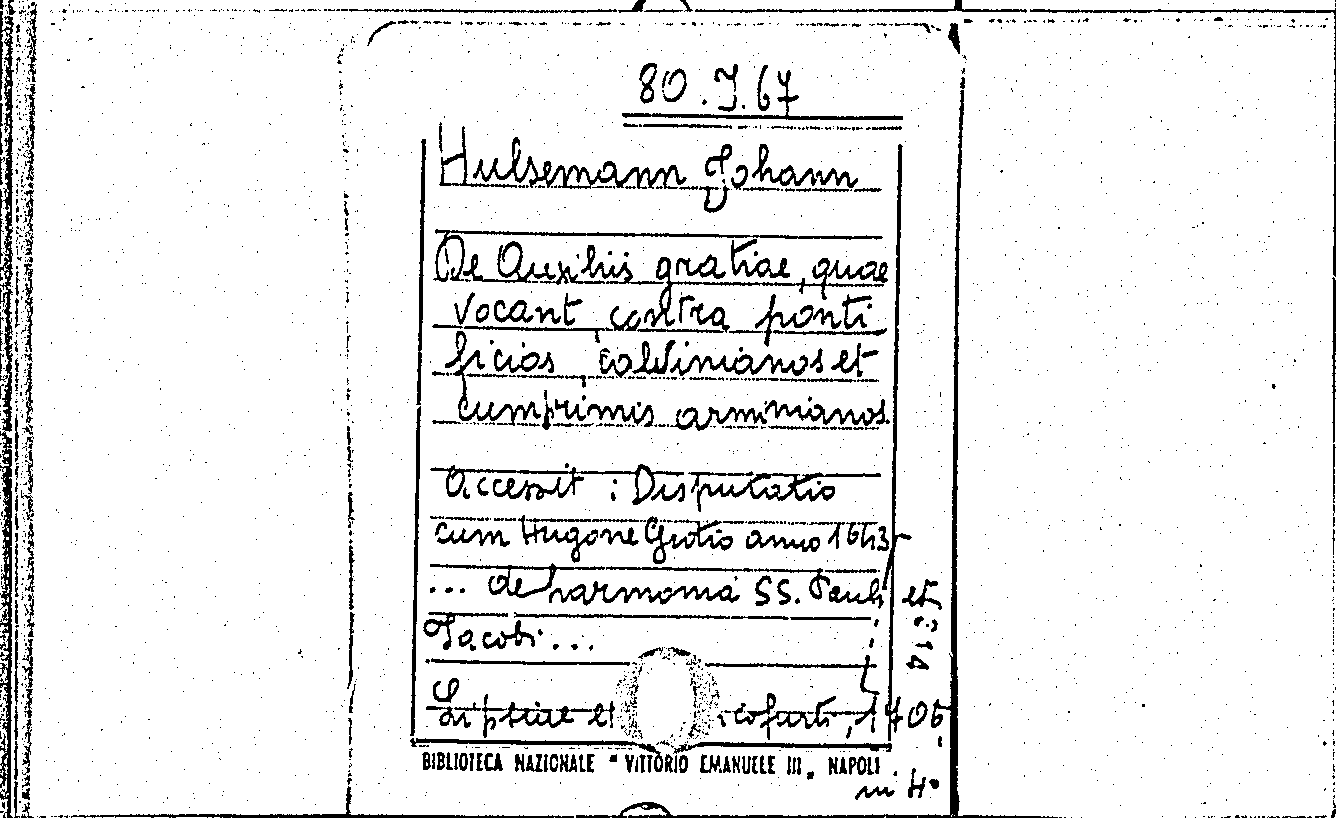 80.J.67
Hulsemann Johann
De Auxiliis gratiae, quae
vocant, contra ponti
ficios, calvinianos et
cumprimis arminianos.
Accessit : Disputatio
cum Hugone Grotio anno 1643
... de harmonia SS. Pauli et
Jacobi...
Lipsiae et
1705
in 4°
BIBLIOTECA NAZIONALE "VITTORIO EMANUELE III" NAPOLI